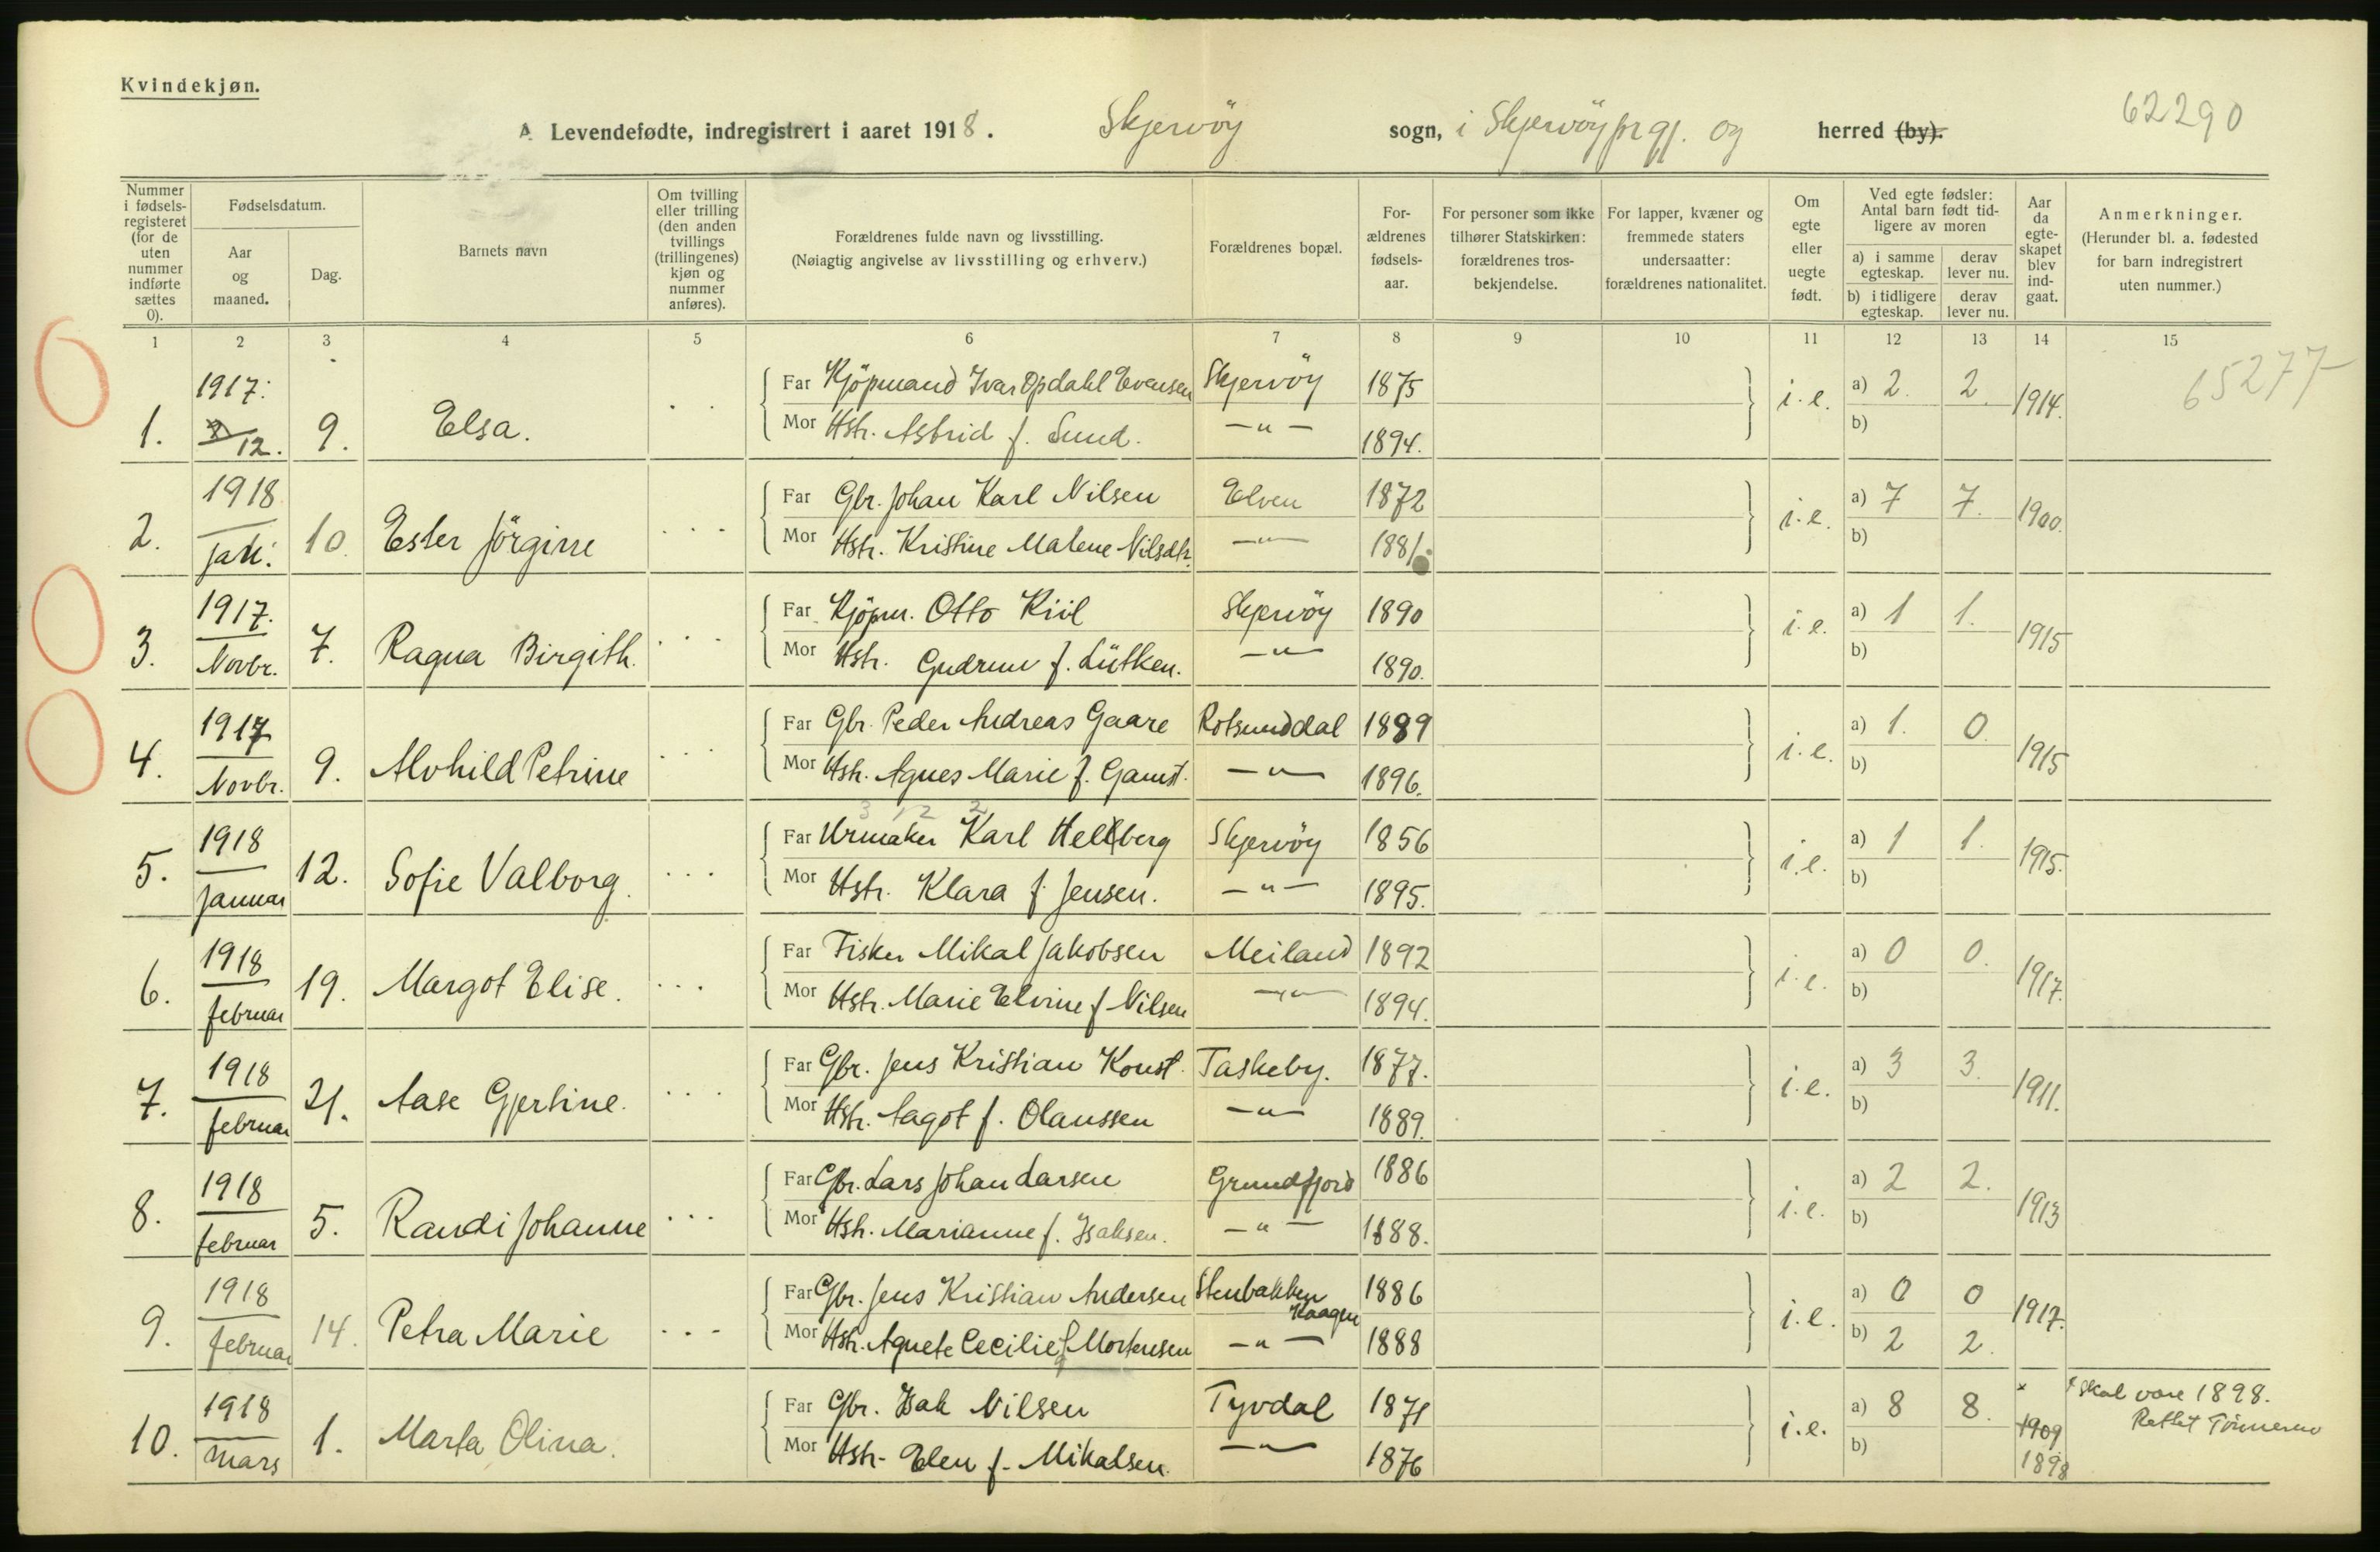 Kvindekjøn.
62290
A Levendefødte, indregistrert i aaret 1918. Skjervöy sogn, i Skjervöy prgj. og herred (by).
Nummer i fødsels-registeret (for de uten nummer indførte sættes 0).
Fødselsdatum.
Aar og maaned.
Dag.
Barnets navn
Om tvilling eller trilling (den anden tvillings (trillingenes) kjøn og nummer anføres).
Forældrenes fulde navn og livsstilling.
(Nøiagtig angivelse av livsstilling og erhverv.)
Forældrenes bopæl.
For-ældrenes fødsels-aar.
For personer som ikke tilhører Statskirken: forældrenes tros-bekjendelse.
For lapper, kvæner og fremmede staters undersaatter: forældrenes nationalitet.
Om egte eller uegte født.
Ved egte fødsler: Antal barn født tid-ligere av moren
a) i samme egteskap.
derav lever nu.
b) i tidligere egteskap.
derav lever nu.
Aar da egte-skapet blev ind-gaat.
Anmerkninger.
(Herunder bl. a. fødested for barn indregistrert uten nummer.)
1 2 3 4 5 6 7 8 9 10 11 12 13 14 15
65277
1917. Far Kjöpmand Ivar Opdahl Evensen Skjervöy 1875 i.e. a) 2. 2. 1914.
1. 12. 9. Elsa. Mor Hstr. Astrid f. Lund. —"— 1894. b)
1918 Far Gbr. Johan Karl Nilsen Elven 1872 i.e. a) 7 7. 1900.
2. jan. 10. Ester Jörgine Mor Hstr. Kristine Malene Nilsdtr. —"— 1881. b)
1917. Far Kjöpm. Otto Kiil Skjervöy 1890 i.e. a) 1 1. 1915
3. Novbr. 7. Ragna Birgith. Mor Hstr. Gudrun f. Lütken. —"— 1890. b)
1917 Far Gbr. Peder Andreas Gaare Rotsunddal 1889 i.e. a) 1. 0. 1915
4. Novbr. 9. Alvhild Petrine Mor Hstr. Agnes Marie f. Gamst. —"— 1896. b)
1918 Far Urmaker Karl Hellberg Skjervöy 1856 i.e. a) 1 1. 1915.
5. Januar 12. Sofie Valborg. Mor Hstr. Klara f. Jensen. —"— 1895. b)
1918 Far Fisker Mikal Jakobsen Meiland 1892 i.e. a) 0 0. 1917.
6. februar 19. Margot Elise. Mor Hstr. Marie Elvine f Nilsen —"— 1894. b)
1918 Far Gbr. Jens Kristian Konst. Taskeby. 1877. i.e. a) 3 3. 1911.
7. februar 21. Aase Gjertine. Mor Hstr. Aagot f. Olaussen —"— 1889. b)
1918 Far Gbr. Lars Johan Larsen Grundfjord 1886 i.e. a) 2 2. 1913
8. februar 5. Randi Johanne Mor Hstr. Marianne f. Isaksen. —"— 1888. b)
1918 Far Gbr. Jens Kristian Andersen Stenbakken Kaagen 1886 i.e. a) 0 0 1917.
9. februar 14. Petra Marie Mor Hstr. Agnete Cecilie f Mortensen —"— 1888 b) 2 2.
1918 Far Gbr. Isak Nilsen Tyvdal 1871 i.e. a) 8 8. × 1909 × skal være 1898.
10. Mars 1. Marta Olina. Mor Hstr. Elen f. Mikalsen. —"— 1876 b) 1898 Rettet